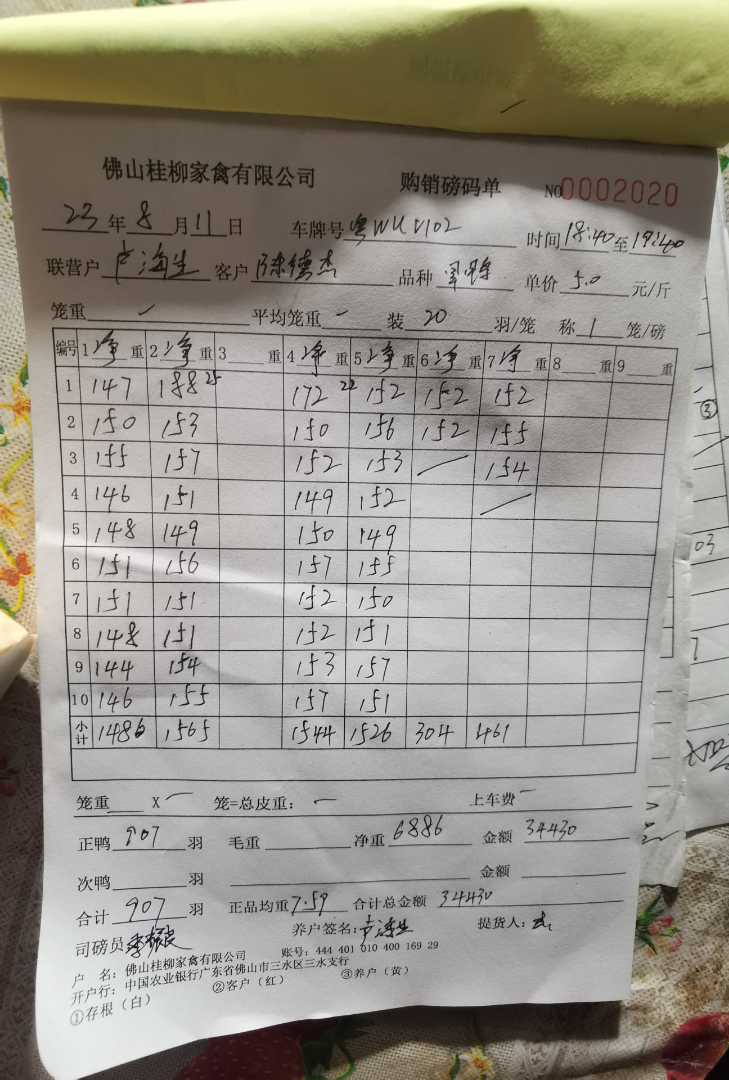 佛山桂柳家禽有限公司 购销磅码单 NO0002020
23年8月11日 车牌号粤WUV102 时间18:40至19:40
联营户卢海生 客户陈德杰 品种 单价5.0元/斤
笼重 / 平均笼重 - 装20羽/笼 称1笼/磅
编号 1净重 2净重 3 重 4净重 5净重 6净重 7净重 8 重 9 重
1 147 188 25 172 22 152 152 152
2 150 153 150 156 152 155
3 155 157 152 153 / 154
4 146 151 149 152 /
5 148 149 150 149
6 151 156 157 155
7 151 151 152 150
8 148 151 152 151
9 144 154 153 157
10 146 155 157 151
小计 1486 1565 1544 1526 304 461
笼重 X - 笼=总皮重: - 上车费 -
正鸭907羽 毛重 净重6886 金额34430
次鸭 羽 金额
合计907羽 正品均重7.59 合计总金额34430
司磅员 养户签名:卢海生 提货人:
户 名: 佛山桂柳家禽有限公司 账号: 444 401 010 400 169 29
开户行: 中国农业银行广东省佛山市三水区三水支行
①存根(白) ②客户(红) ③养户(黄)
③
03
7